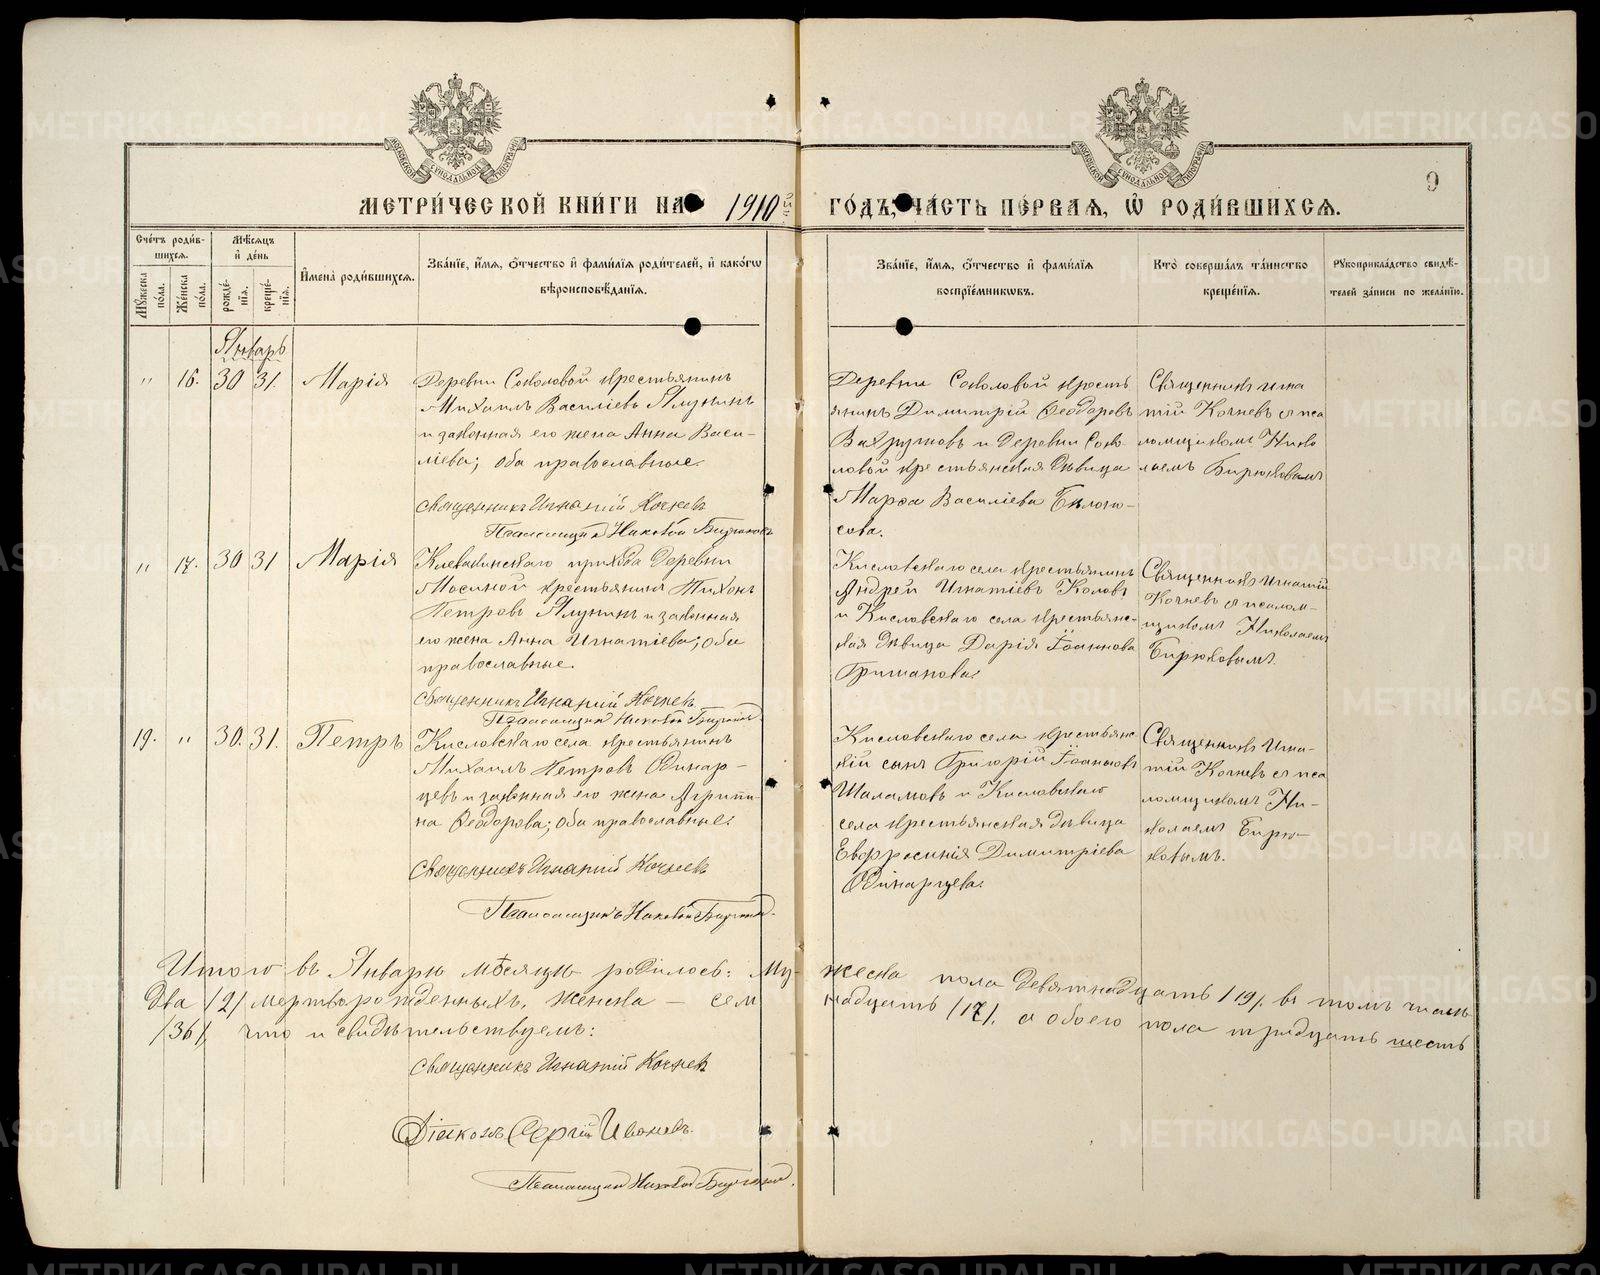 9
МЕТРИ́ЧЕСКОЙ КНИ́ГИ НА 1910 ГО́ДЪ, ЧА́СТЬ ПЕ́РВАѦ, Ѡ҆ РОДИ́ВШИХСѦ.
Сче́тъ роди́вшихсѧ.
Мꙋ́жеска по́ла.
Же́нска по́ла.
Мѣ́сѧцъ и҆ де́нь
рожде́нїѧ.
креще́нїѧ.
И҆мена̀ роди́вшихсѧ.
Зва́нїе, и҆́мѧ, ѻ҆́тчество и҆ фами́лїѧ роди́телей, и҆ како́гѡ
вѣроисповѣ́данїѧ.
Зва́нїе, и҆́мѧ, ѻ҆́тчество и҆ фами́лїѧ
воспрїе́мникѡвъ.
Кто̀ соверша́лъ та́инство
креще́нїѧ.
Рꙋкоприкла́дство свидѣ́-
телей за́писи по жела́нїю.
Январь
" 16. 30 31. Марія
Деревни Соколовой крестьянинъ
Михаилъ Василіевъ Ялунинъ
и законная его жена Анна Васи-
ліева; оба православные.
Священникъ Игнатій Кочневъ
Псаломщикъ Николай Бирюковъ
Деревни Соколовой кресть
янинъ Димитрій Ѳеодоровъ
Вахрушовъ и деревни Соко
ловой крестьянская дѣвица
Марѳа Василіева Бѣлоно-
сова.
Священникъ Игна
тій Кочневъ съ пса
ломщикомъ Нико
лаемъ Бирюковымъ
" 17. 30 31 Марія
Клевакинскаго прихода деревни
Мосиной крестьянинъ Тихонъ
Петровъ Ялунинъ и законная
его жена Анна Игнатіева; оба
православные.
Священникъ Игнатій Кочневъ
Псаломщикъ Николай Бирюковъ
Кисловскаго села крестьянинъ
Андрей Игнатіевъ Коловъ
и Кисловскаго села крестьянс-
кая дѣвица Дарія Іоаннова
Гришанова.
Священникъ Игнатій
Кочневъ съ псалом-
щикомъ Николаемъ
Бирюковымъ.
19. " 30. 31. Петръ
Кисловскаго села крестьянинъ
Михаилъ Петровъ Одинар-
цевъ и законная его жена Агрипи-
на Ѳеодорова; оба православные.
Священникъ Игнатій Кочневъ
Псаломщикъ Николай Бирюковъ.
Кисловскаго села крестьянс-
кій сынъ Григорій Іоанновъ
Шаламовъ и Кисловскаго
села крестьянская дѣвица
Евфросинія Димитріева
Одинарцева.
Священникъ Игна-
тій Кочневъ съ пса
ломщикомъ Ни-
колаемъ Бирю-
ковымъ.
Итого въ Январѣ мѣсяцѣ родилось: му- жеска пола девятнадцать /19/. въ томъ числѣ
два /2/ мертворожденныхъ, женска – сем надцать /17/. а обоего пола тридцать шесть
/36/, что и свидѣтельствуемъ:
Священникъ Игнатій Кочневъ
Діаконъ Сергій Ивановъ.
Псаломщикъ Николай Бирюковъ.